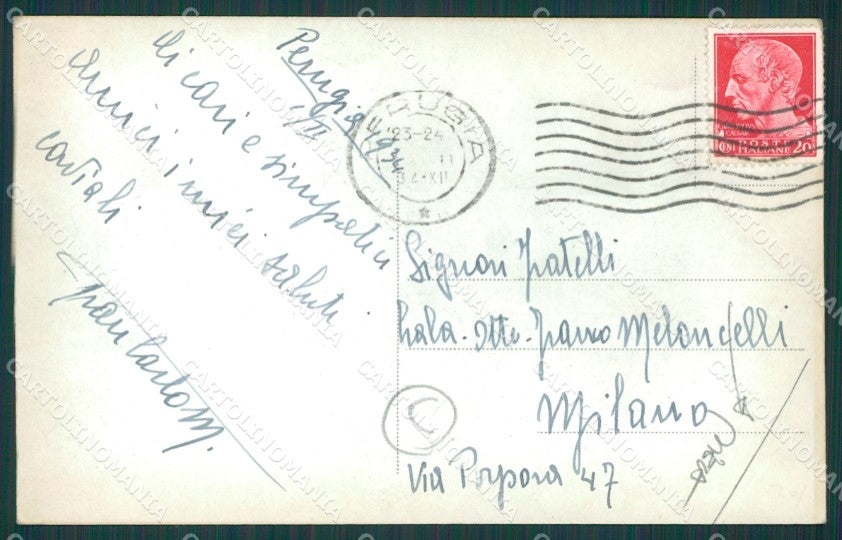 Perugia 934
Ai cari e simpatici
amici i miei saluti
cordiali
PERUGIA
23-24
II
34·XII
POSTE
CENT ITALIANE 20
Signori Fratelli
Lala - Otto - Franco Melandelli
Milano
Via Porpora 47
CARTOLINOMANIA